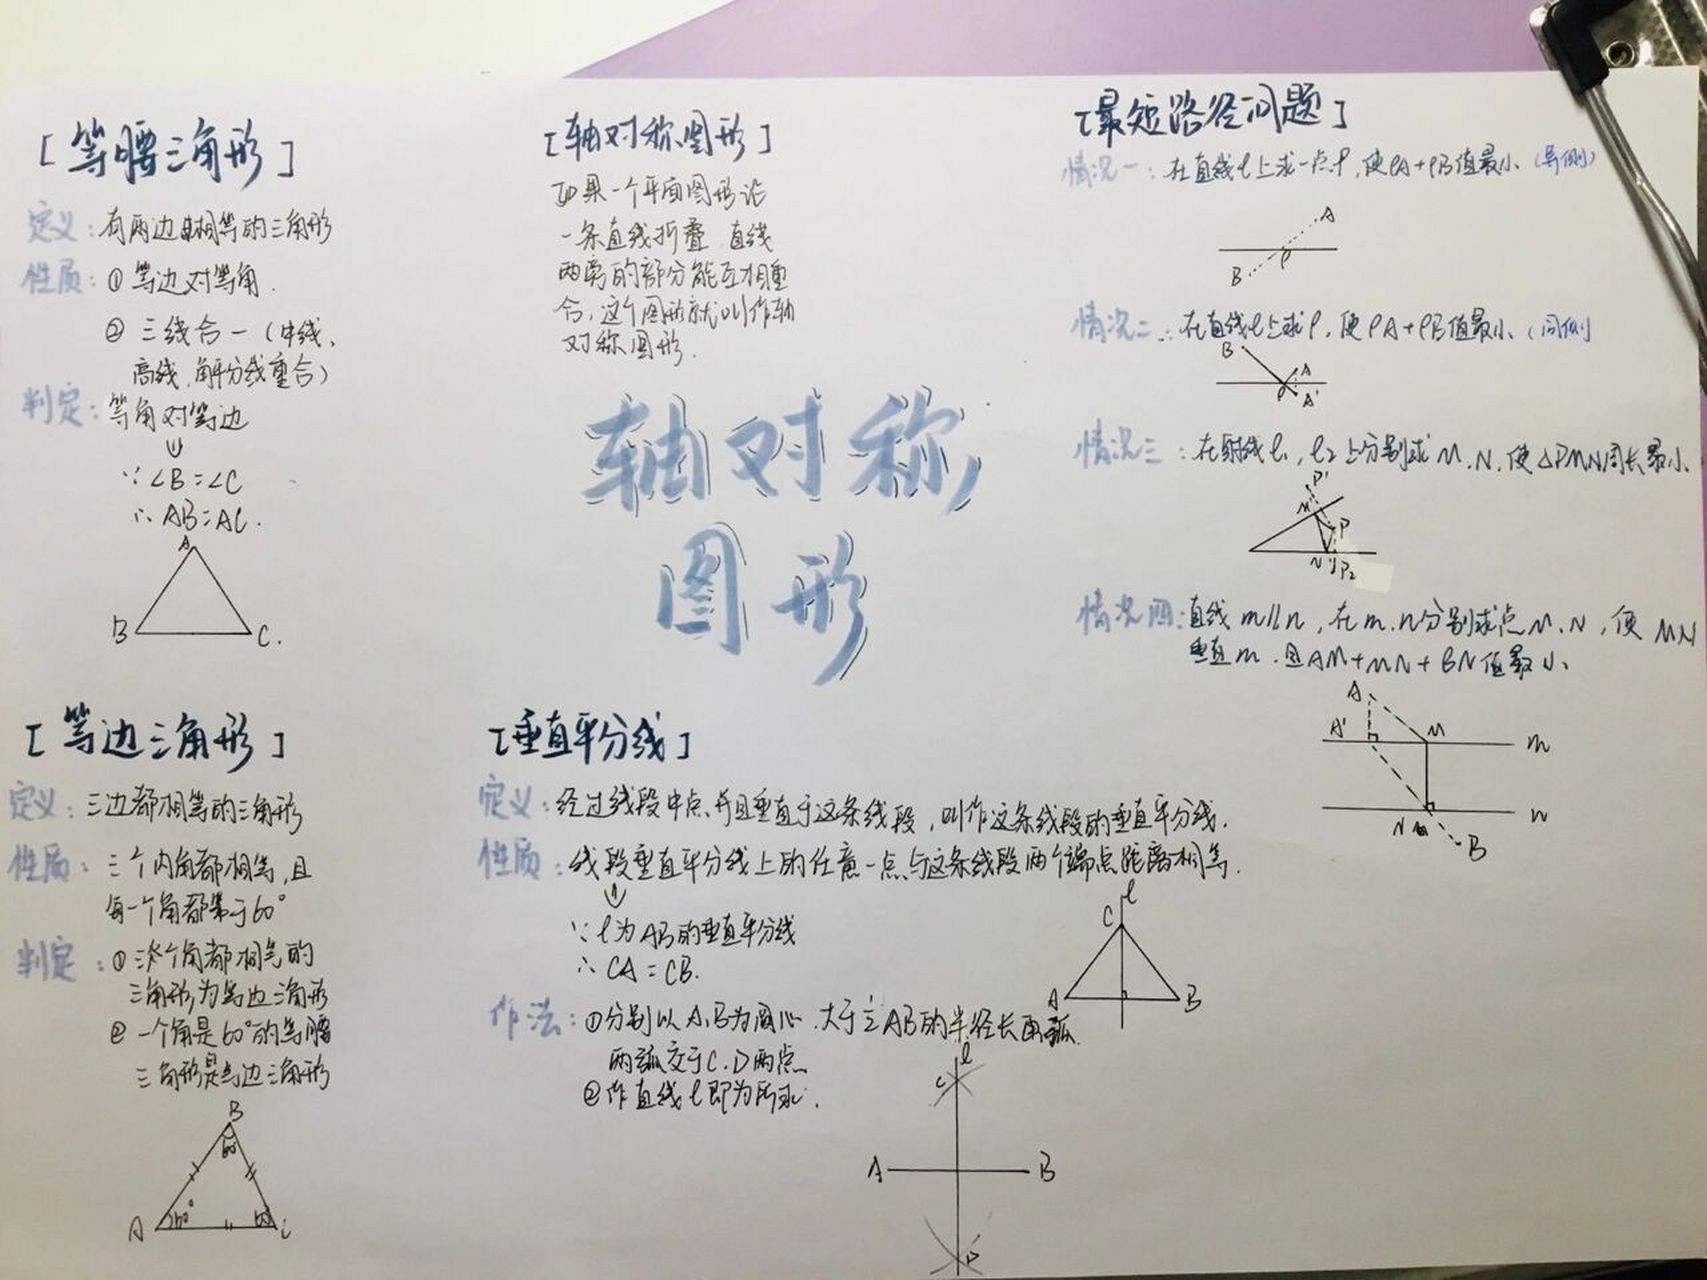 [等腰三角形]
定义：有两边相等的三角形
性质：①等边对等角.
②三线合一（中线、
高线、角平分线重合）
判定：等角对等边
∵∠B=∠C
∴AB=AC.
A
B
C.
[轴对称图形]
如果一个平面图形沿
一条直线折叠,直线
两旁的部分能互相重
合,这个图形就叫作轴
对称图形.
轴对称
图形
[最短路径问题]
情况一：在直线l上求一点P,使PA+PB值最小（异侧）
A
P
B
情况二：在直线l上求P,使PA+PB值最小（同侧
B
A
P
A'
情况三：在射线l₁,l₂上分别求M、N,使△PMN周长最小、
P'
M
P
N
P₂
情况四：直线m//n,在m、n分别求点M、N,使MN
垂直m.且AM+MN+BN值最小、
A
A'
M
m
N
n
B
[等边三角形]
定义：三边都相等的三角形
性质：三个内角都相等,且
每一个角都等于60°
判定：①三个角都相等的
三角形为等边三角形
②一个角是60°的等腰
三角形是等边三角形
B
60°
A
60°
60
C
[垂直平分线]
定义：经过线段中点、并且垂直于这条线段,叫作这条线段的垂直平分线.
性质：线段垂直平分线上的任意一点与这条线段两个端点距离相等.
∵l为AB的垂直平分线
∴CA=CB.
l
C
A
B
作法：①分别以A、B为圆心、大于½AB的半径长画弧.
两弧交于C、D两点
②作直线l即为所求.
l
C
A
B
D